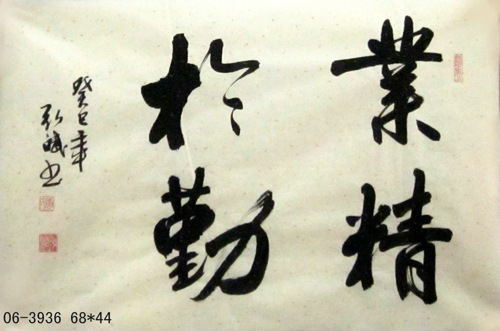 業精
於勤
癸巳年
弘斌书
06-3936 68*44